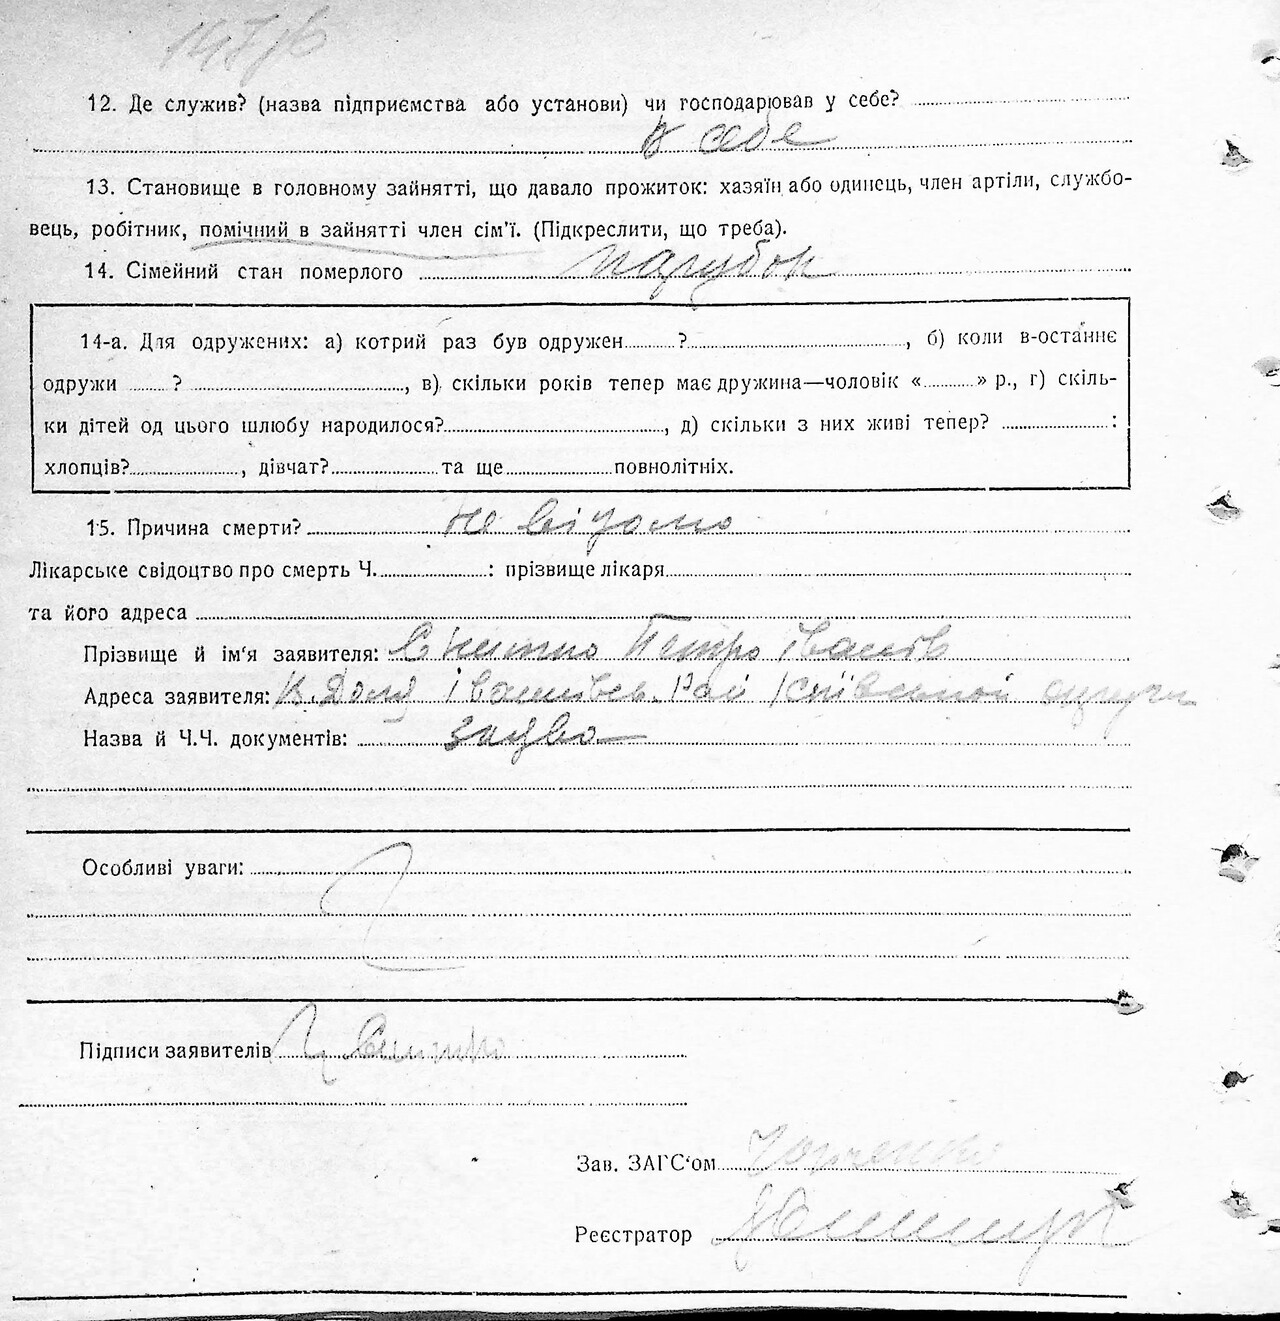 12. Де служив? (назва підприємства або установи) чи господарював у себе?
у себе
13. Становище в головному зайнятті, що давало прожиток: хазяїн або одинець, член артіли, службо-
вець, робітник, помічний в зайнятті член сім'ї. (Підкреслити, що треба).
14. Сімейний стан померлого парубок
14-а. Для одружених: а) котрий раз був одружен ? , б) коли в-останнє
одружи ? , в) скільки років тепер має дружина—чоловік « » р., г) скіль-
ки дітей од цього шлюбу народилося? , д) скільки з них живі тепер? :
хлопців? , дівчат? та ще повнолітніх.
15. Причина смерти? Не відомо
Лікарське свідоцтво про смерть Ч. : прізвище лікаря
та його адреса
Прізвище й ім'я заявителя: Петро Іванів
Адреса заявителя: Київської округи
Назва й Ч.Ч. документів: заява
Особливі уваги:
Підписи заявителів
Зав. ЗАГС'ом
Реєстратор